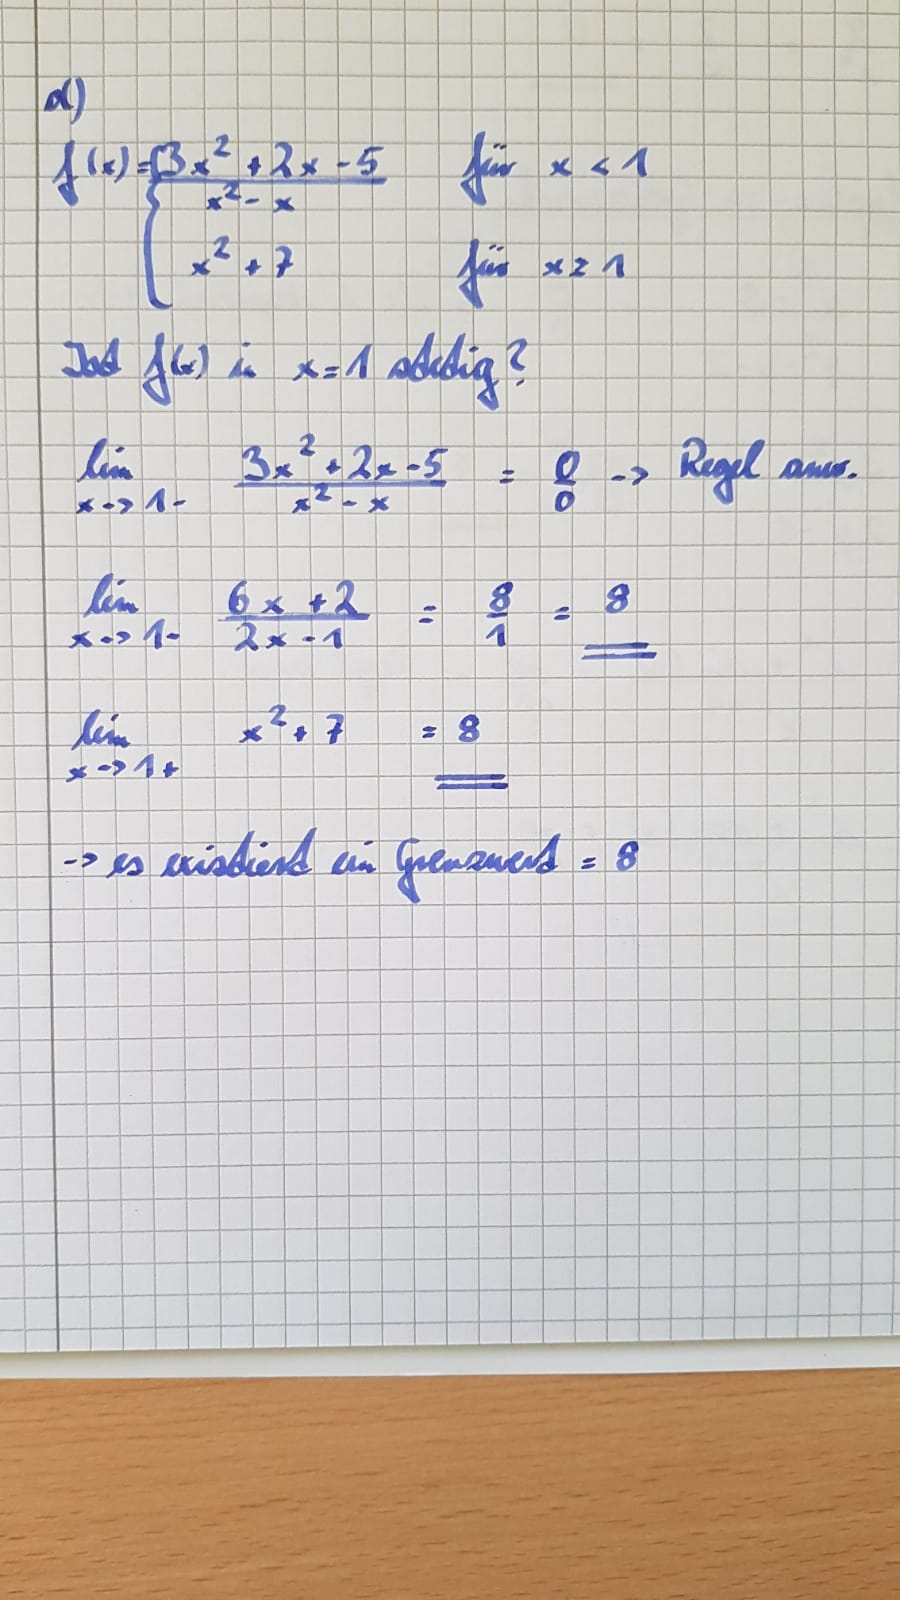 d)
f(x) = { (3x² + 2x - 5) / (x² - x) für x < 1
x² + 7 für x ≥ 1
Ist f(x) in x = 1 stetig?
lim x -> 1- (3x² + 2x - 5) / (x² - x) = 0/0 -> Regel anw.
lim x -> 1- (6x + 2) / (2x - 1) = 8/1 = 8
lim x -> 1+ x² + 7 = 8
-> es existiert ein Grenzwert = 8